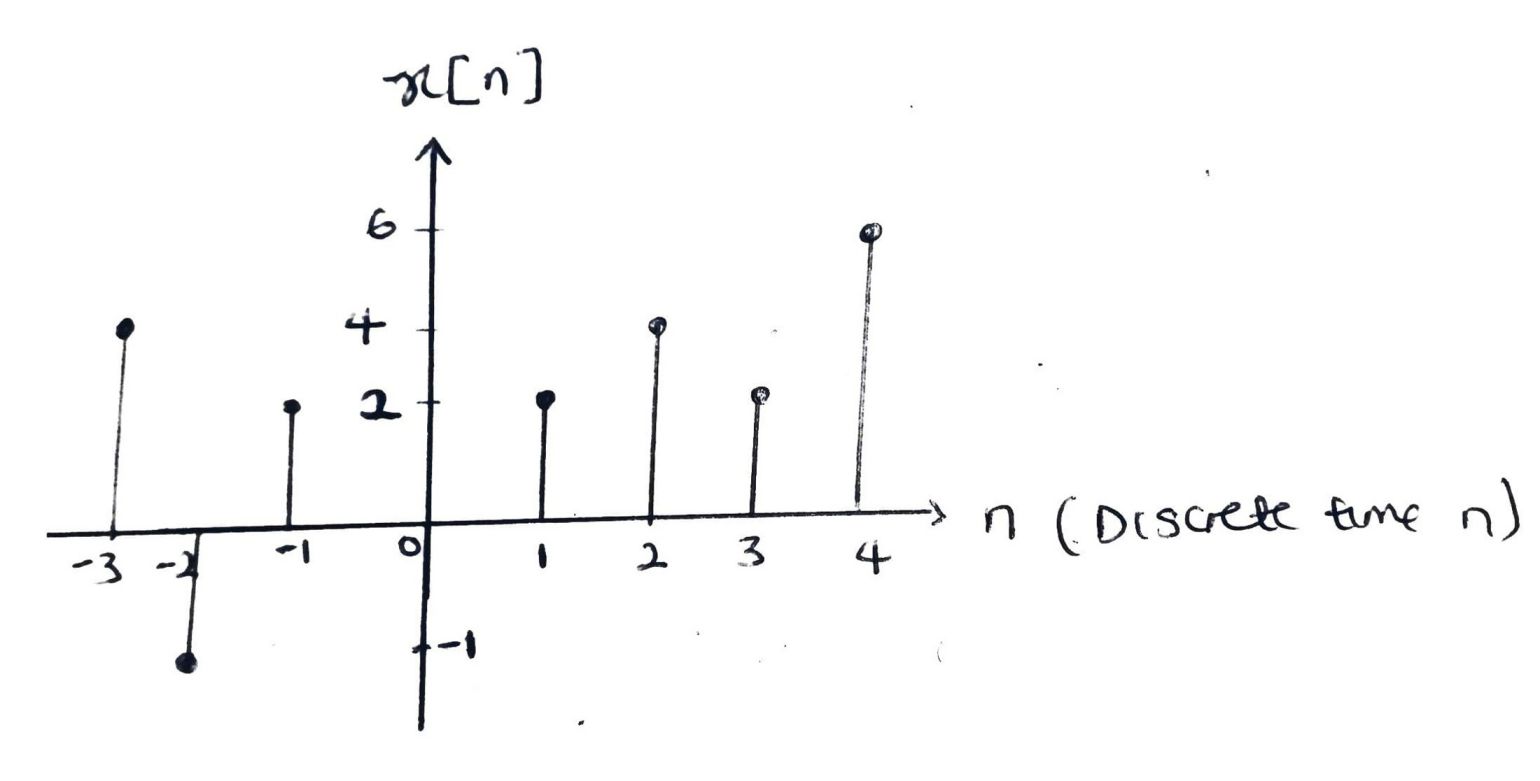 x[n]
6
4
2
-3 -2 -1 0 1 2 3 4 n (Discrete time n)
-1